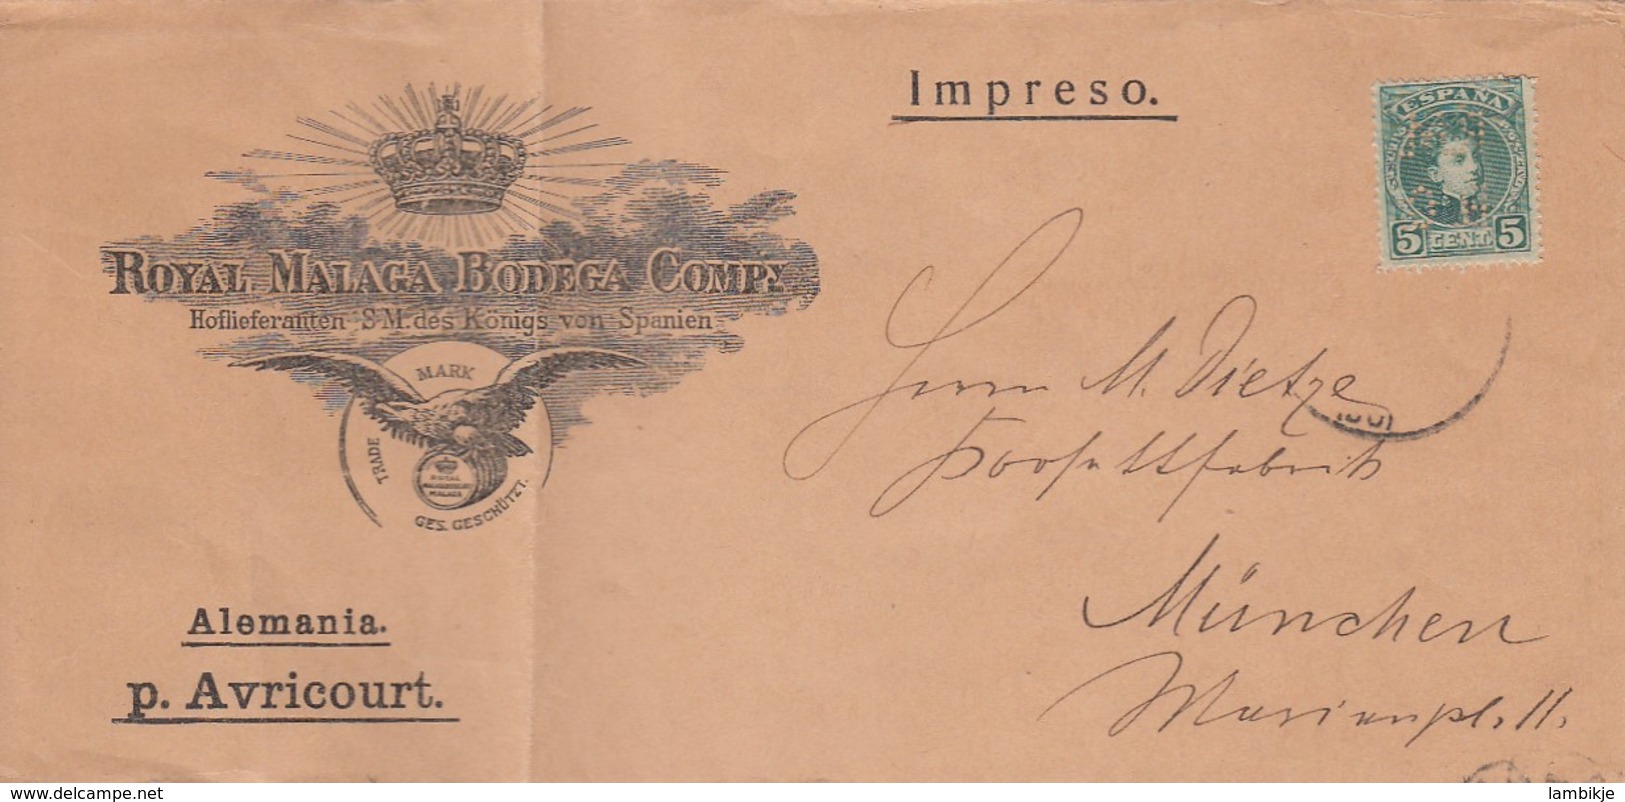 Impreso.
ESPAÑA
5 CENT. 5
ROYAL MALAGA BODEGA COMPY
Hoflieferanten S.M. des Königs von Spanien
TRADE MARK
ROYAL
MALAGA
GES. GESCHÜTZT.
Herrn M. Dietze
Korsettfabrik
München
Marienpl. 11.
Alemania.
p. Avricourt.
www.delcampe.net
lambikje